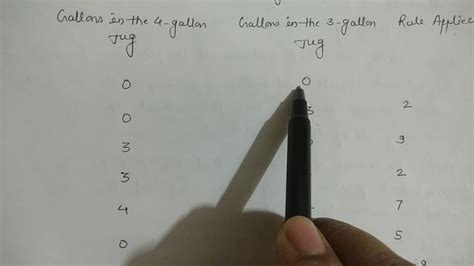 Gallons in the 4-gallon Jug Gallons in the 3-gallon Jug Rule Applied
0 0
0 3 2
3 9
3 2
4 7
0 5